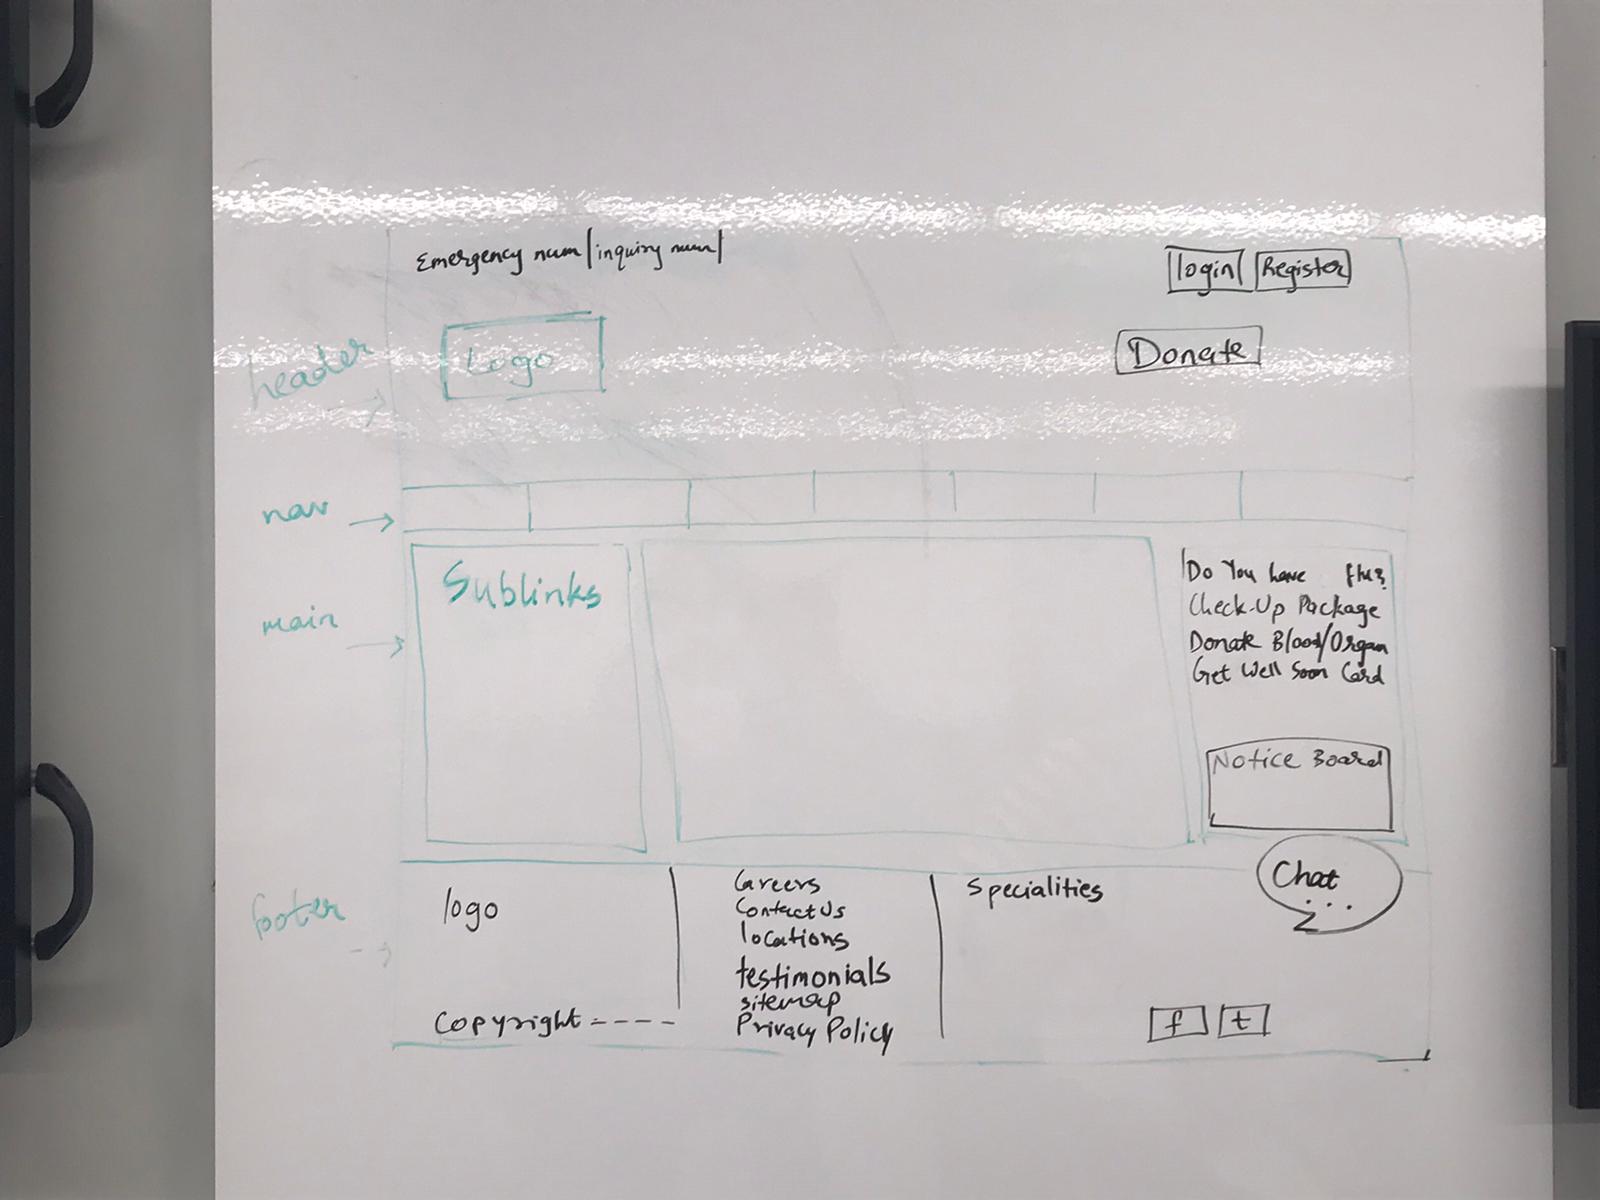 Emergency num/inquiry num/
login Register
header
Logo
Donate
nav
Sublinks
main
Do You have flu?
Check-Up Package
Donate Blood/Organ
Get Well Soon Card
Notice Board
footer
logo
Copyright ----
Careers
Contact Us
locations
testimonials
sitemap
Privacy Policy
Specialities
Chat
...
f t